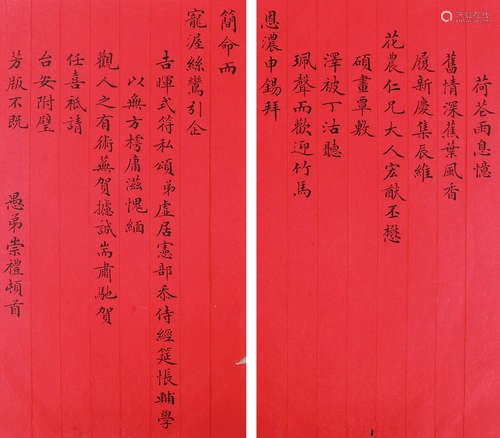 荷苍雨息憶
舊情深蕉葉風香
履新慶集辰維
花農仁兄大人宏猷丕懋
碩畫覃敷
澤被丁沽聽
珮聲而歡迎竹馬
恩濃申錫拜
簡命而
寵渥絲鸞引企
吉暉式符私頌弟虛居憲部忝侍經筵悵輔學
以無方樗庸滋愧緬
觀人之有術蕪賀攄誠耑肅馳賀
任喜祗請
台安附璧
芳版不既
愚弟崇禮頓首